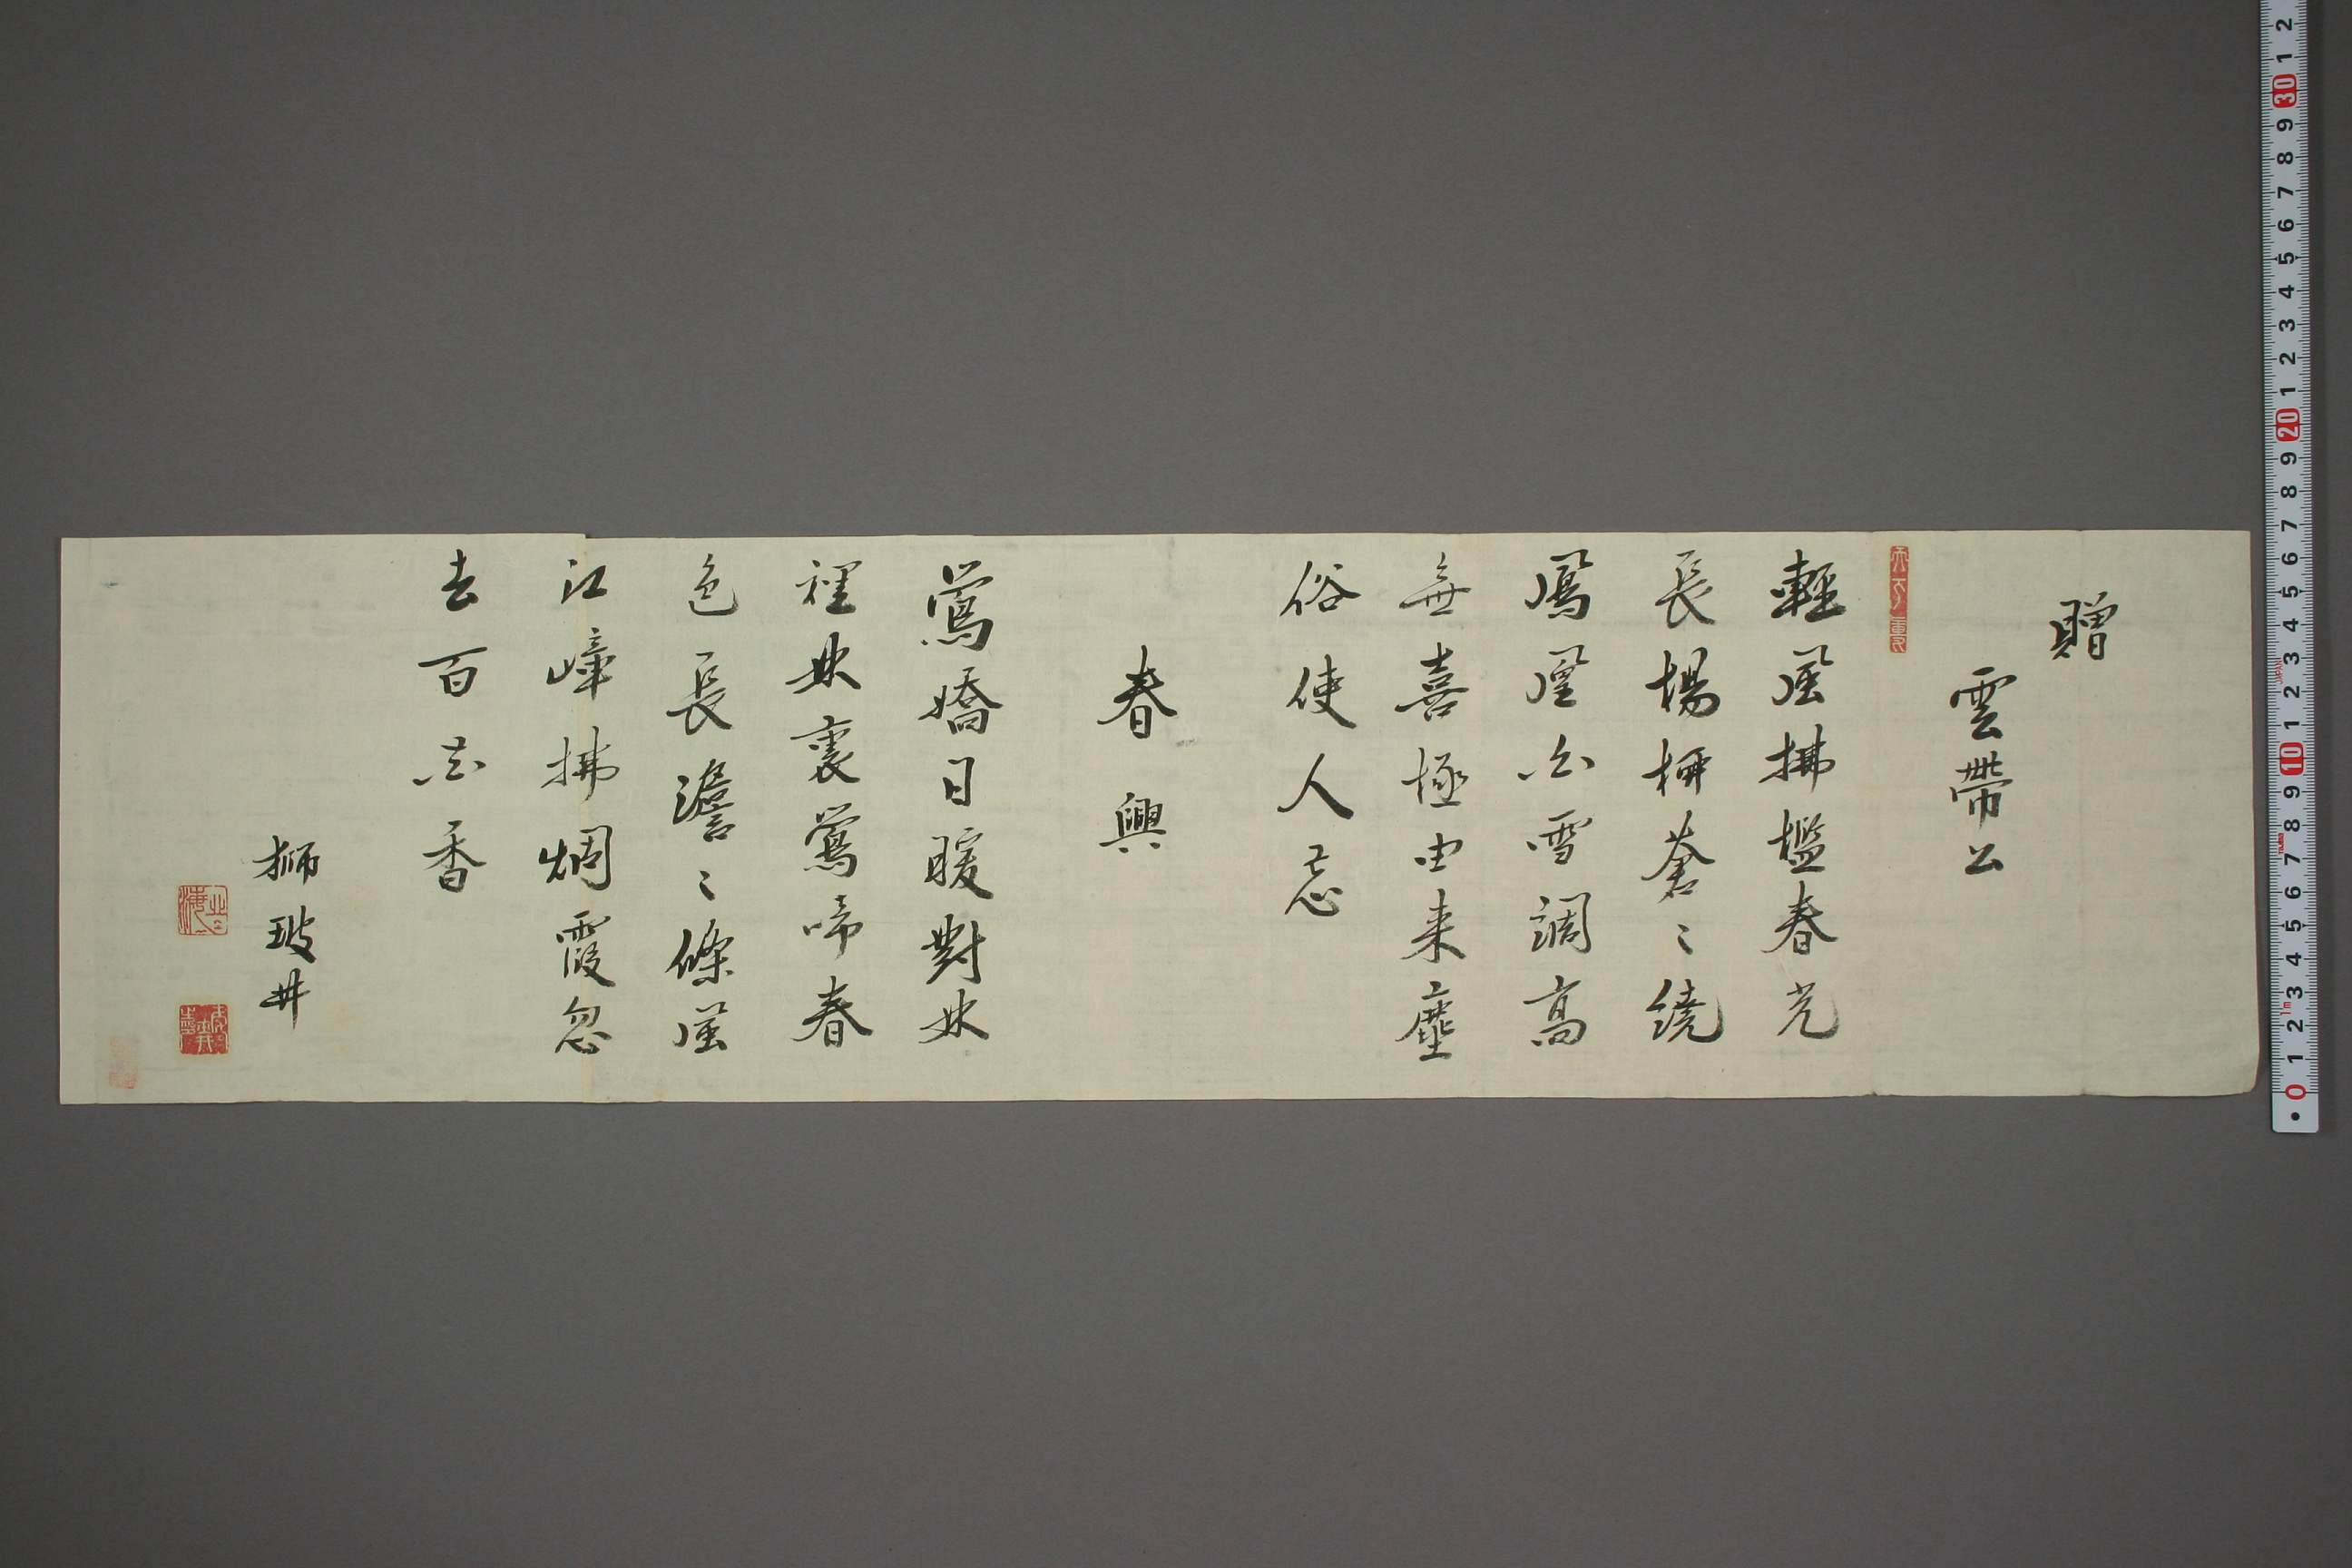 贈
雲帶公
輕風拂檻春光
長楊柳蒼〻繞
鳳凰白雪調高
無喜極由来塵
俗使人忘
春興
鶯嬌日暖對林
裡林裏鶯啼春
色長澹〻條風
江嶂拂烟霞忽
去百花香
玻井